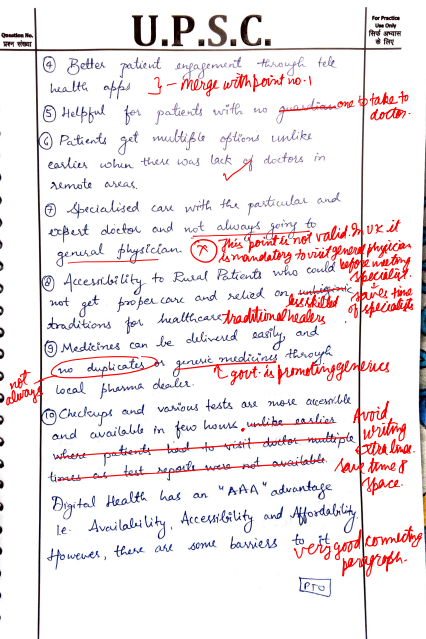 Question No.
प्रश्न संख्या
U.P.S.C.
For Practice
Use Only
सिर्फ अभ्यास
के लिए
④ Better patient engagement through tele
health apps } - Merge with point no. 1
⑤ Helpful for patients with no guardian one to take to
doctor.
⑥ Patients get multiple options unlike
earlier when there was lack of doctors in
remote areas.
⑦ Specialised care with the particular and
expert doctor and not always going to
general physician. (X) This point is not valid. In UK it
is mandatory to visit general physician
before meeting
specialist.
↓
saves time
of specialists
⑧ Accessibility to Rural Patients who could
not get proper care and relied on unhygienic
less skilled
traditions for healthcare traditional healers
⑨ Medicines can be delivered easily and
no duplicates or generic medicines through
not
always
govt. is promoting generics
local pharma dealer.
⑩ Checkups and various tests are more accessible
and available in few hours. unlike earlier
where patients had to visit doctor multiple
times as test reports were not available.
Avoid
writing
extra lines.
save time &
space.
Digital Health has an "AAA" advantage
i.e. Availability, Accessibility and Affordability.
However, there are some barriers to it
very good connecting
paragraph.
PTO